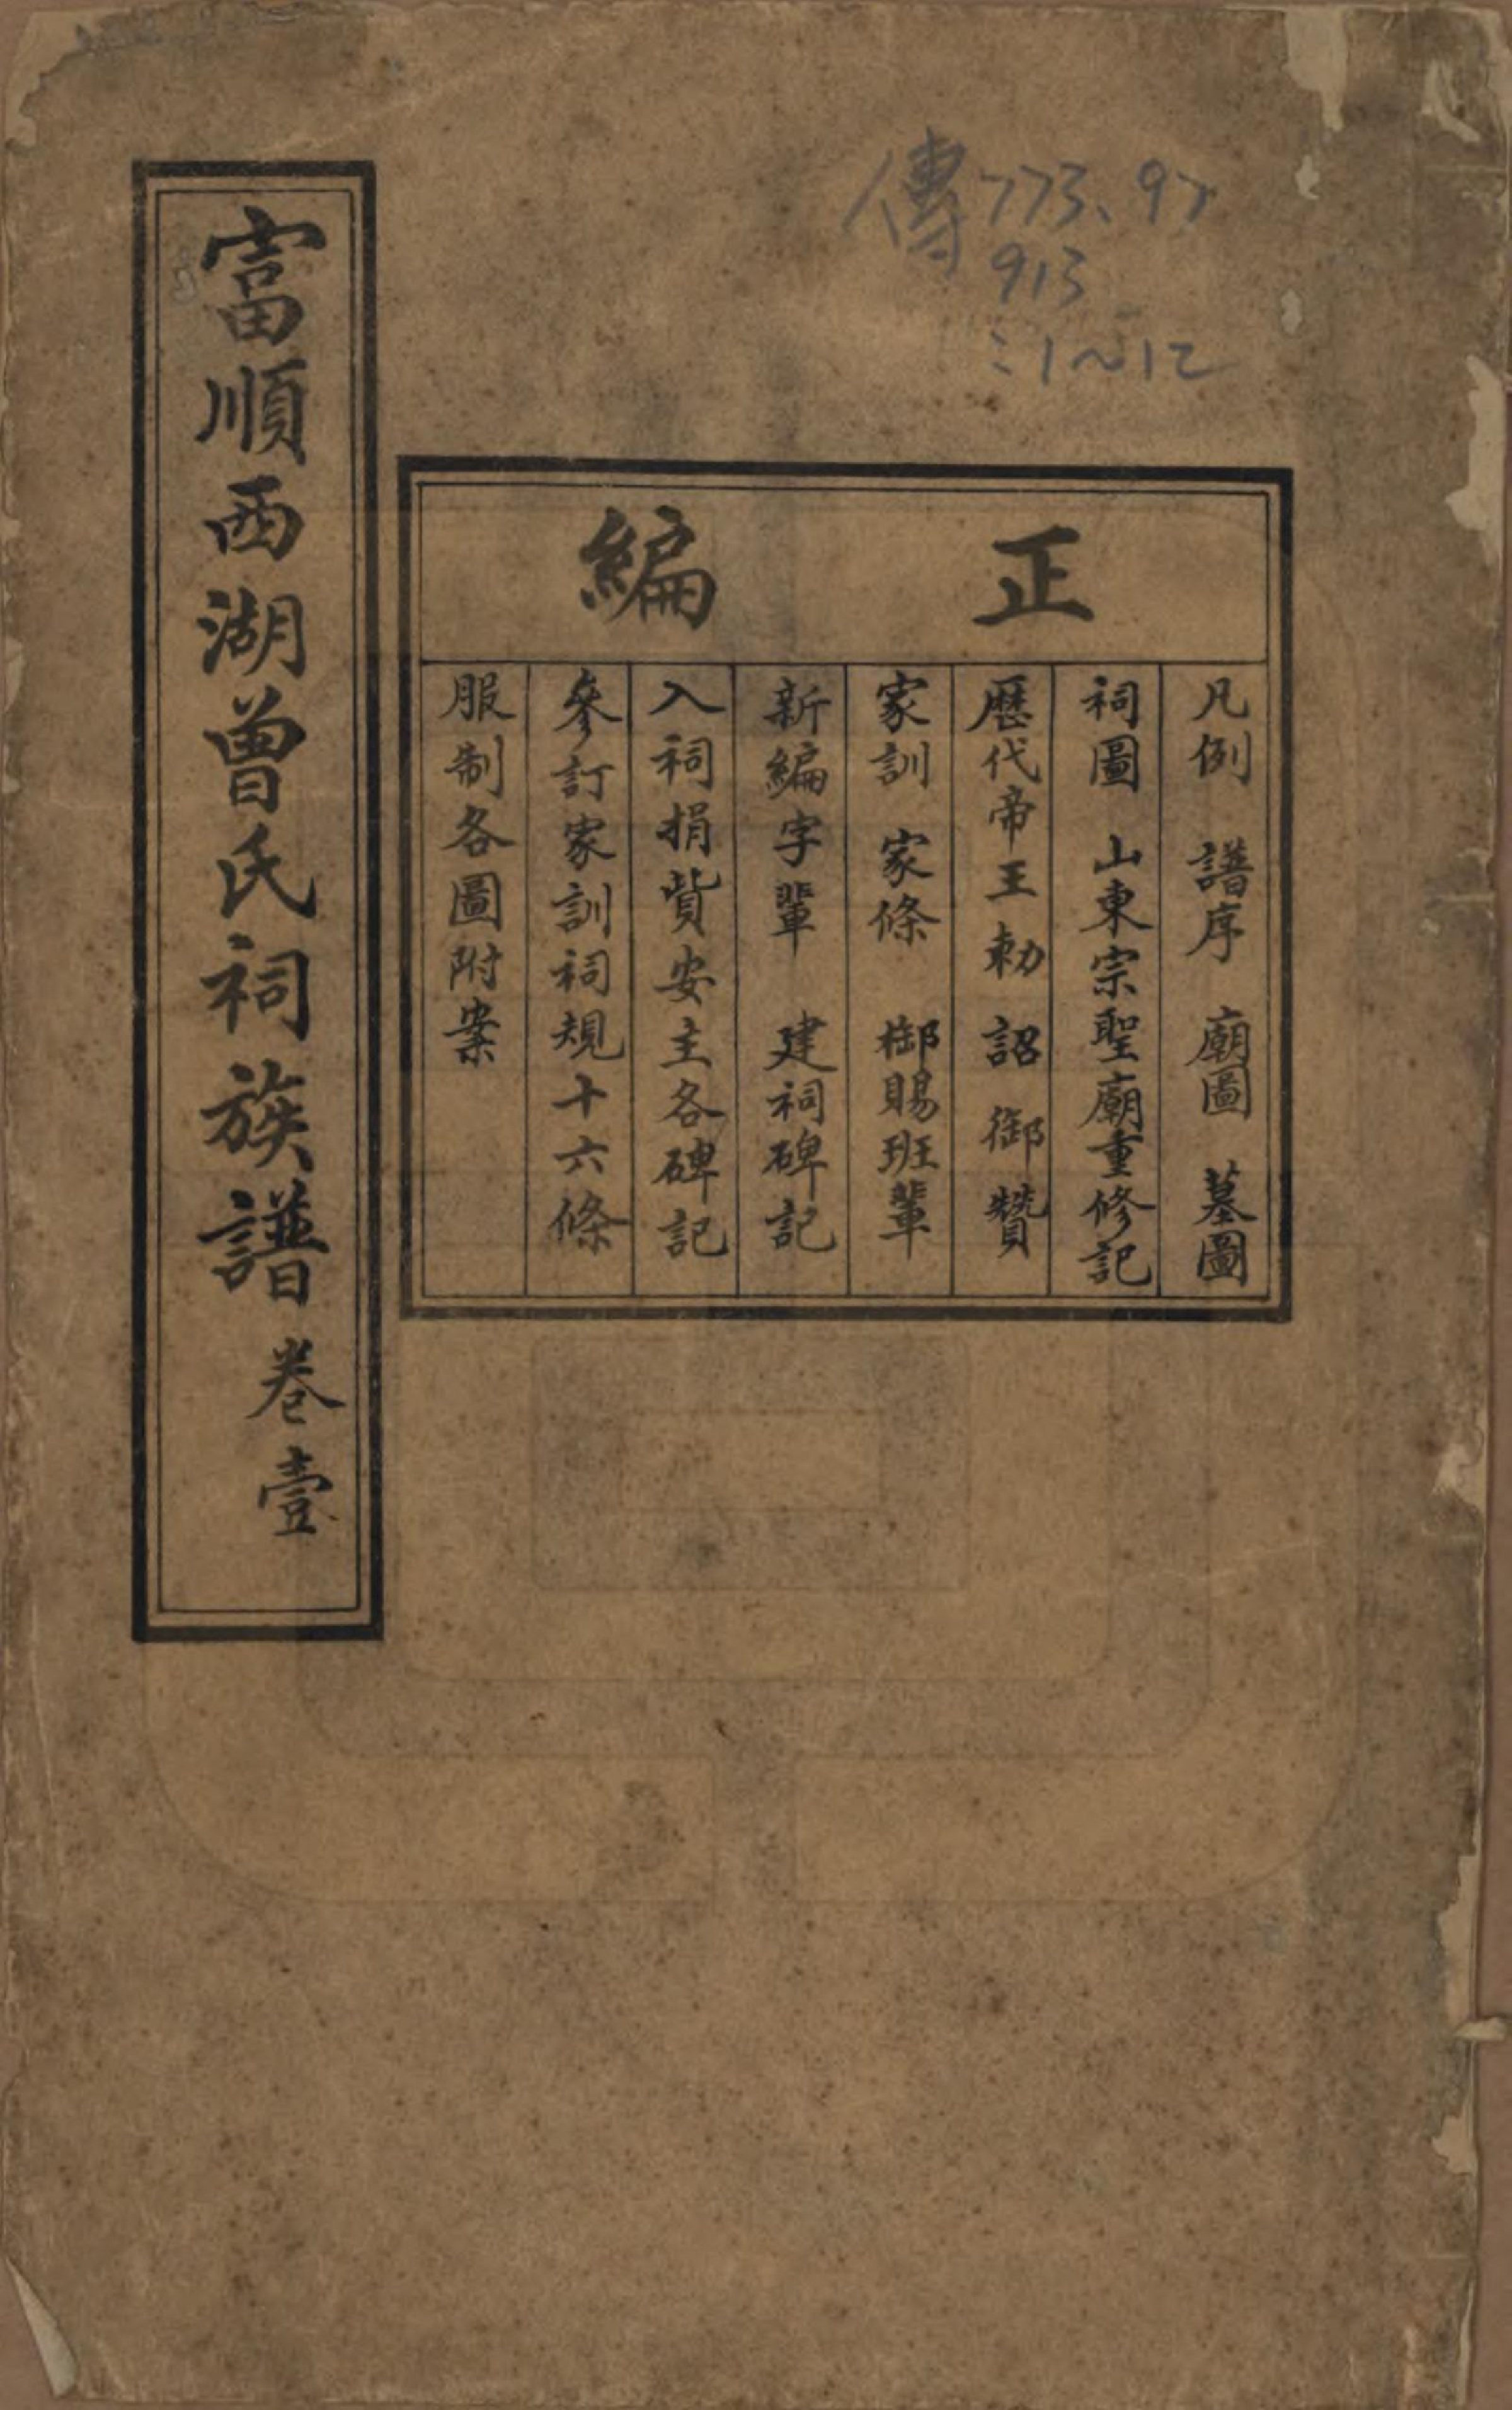 傳773.97
913
:1~12
正編
凡例 譜序 廟圖 墓圖
祠圖 山東宗聖廟重修記
歷代帝王勅 詔 御贊
家訓 家條 御賜班輩
新編字輩 建祠碑記
入祠捐貲安主各碑記
參訂家訓祠規十六條
服制各圖附案
富順西湖曾氏祠族譜 卷壹